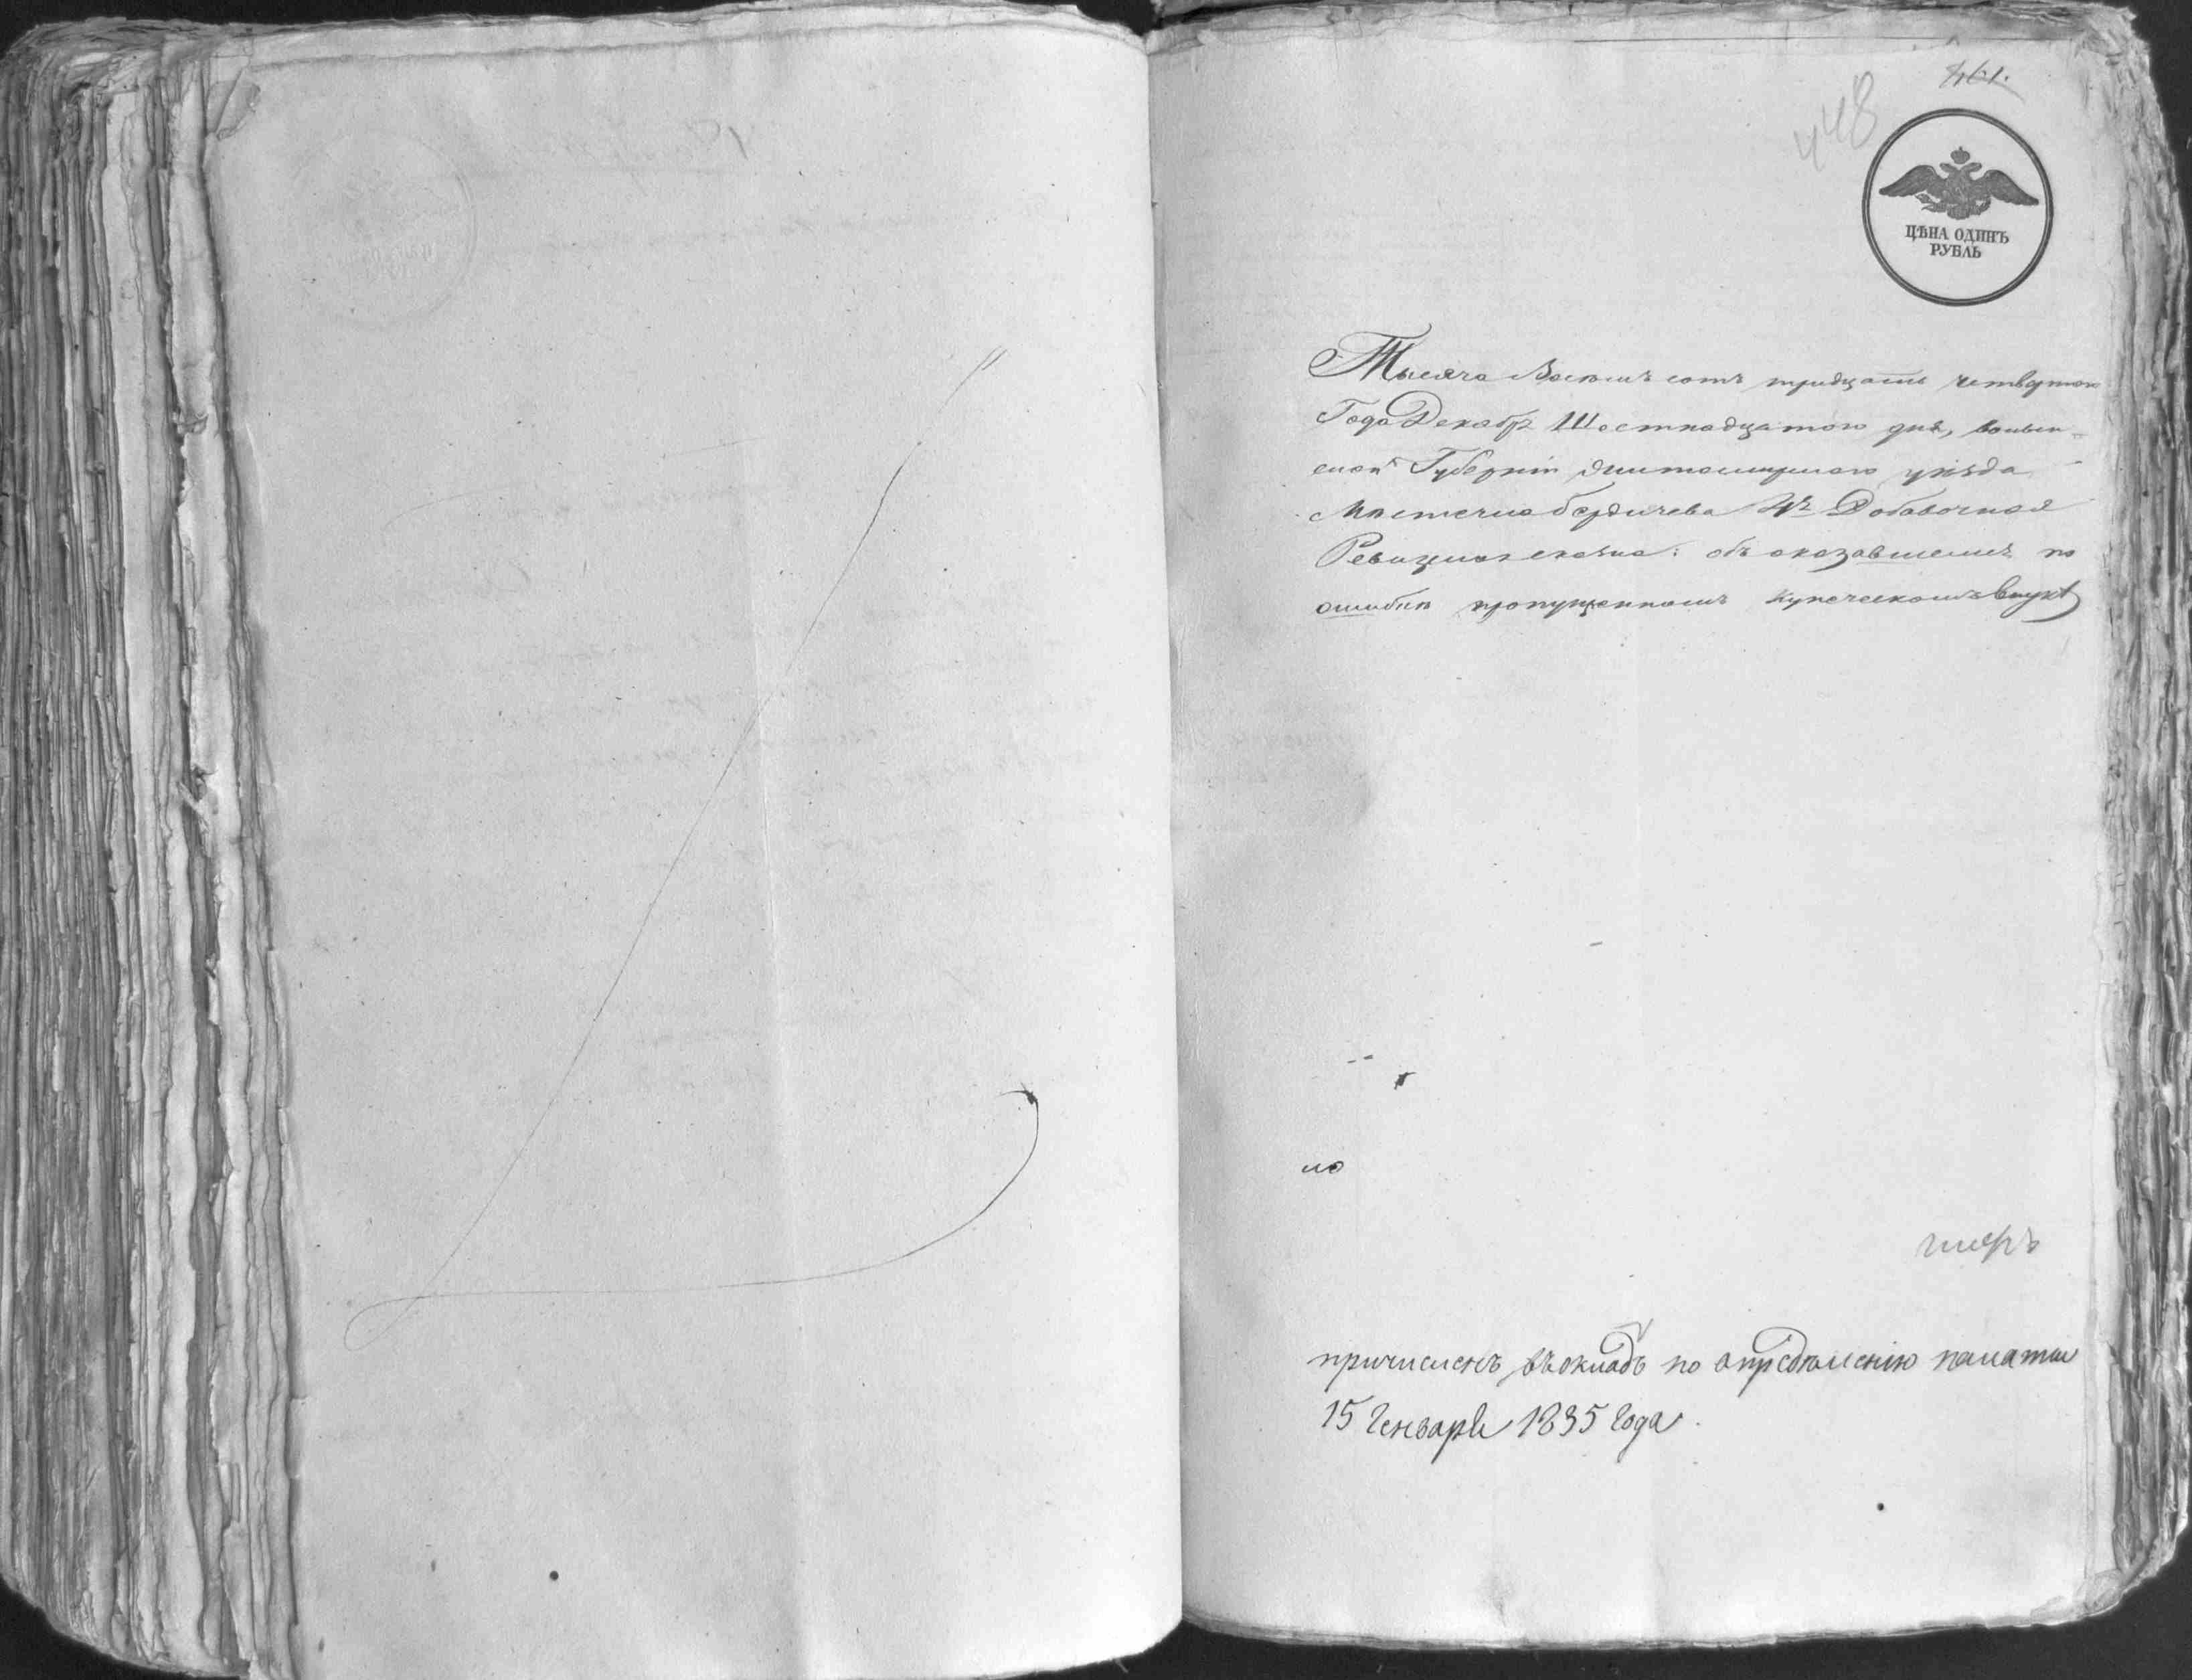 461.
448
ЦѢНА ОДИНЪ
РУБЛЬ
Тысяча Восемъ сотъ тридцать четвертого
Года Декабр Шестнадцатого дня, волын-
ской Губерніи Житомирского уѣзда
Мѣстечка бердичева 4я Добавочная
Ревизская сказка: объ оказавшемъ по
ошибкѣ пропущенномъ купеческомъ внукѣ
но
причисленъ въ окладъ по опредѣленію палаты
15 Генваря 1835 Года.